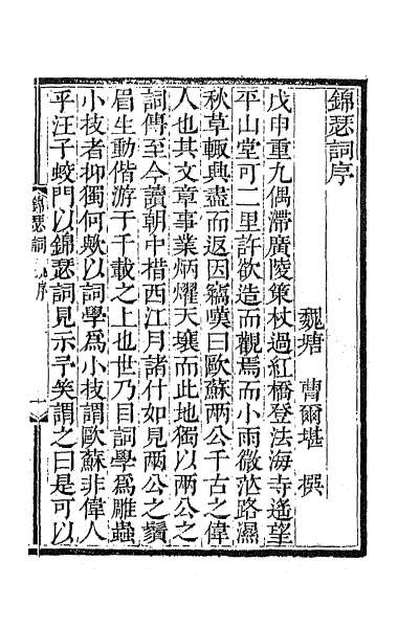 錦瑟詞序
魏塘　曹爾堪　撰
戊申重九偶滯廣陵策杖過紅橋登法海寺遙望
平山堂可二里許欲造而觀焉而小雨微茫路濕
秋草輙興盡而返因竊嘆曰歐蘇兩公千古之偉
人也其文章事業炳燿天壤而此地獨以兩公之
詞傳至今讀朝中措西江月諸什如見兩公之鬚
眉生動偕游于千載之上也世乃目詞學爲雕蟲
小技者抑獨何歟以詞學爲小技謂歐蘇非偉人
乎汪子蛟門以錦瑟詞見示予笑謂之曰是可以
錦瑟詞
序
一